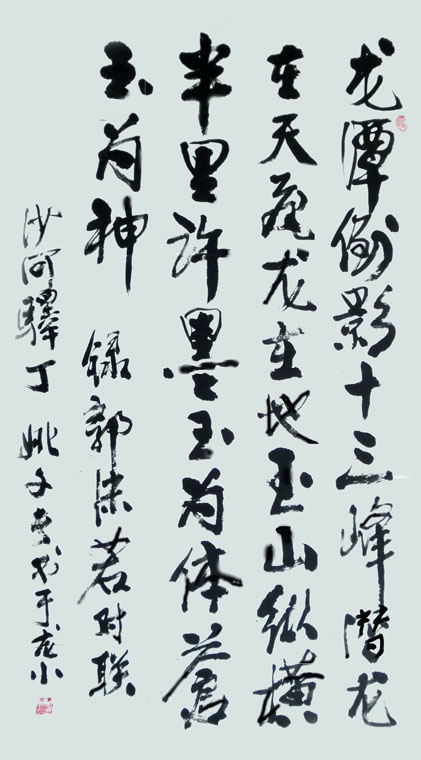 龙潭倒影十三峰潜龙
在天飛龙在地玉山纵横
半里许墨玉为体苍
玉为神 録郭沫若对联
沙河驿丁 姚文书于龙小